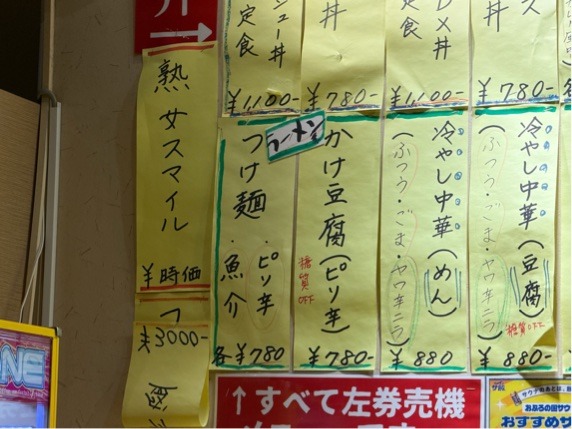 定食
ュー丼
¥1,100-
丼
¥780-
定食
メ丼
¥1100-
丼
ス
¥780-
冷やし中華(豆腐)
(ふつう・ごま・ヤワキニラ)
糖質OFF
¥880-
冷やし中華(めん)
(ふつう・ごま・ヤワキニラ)
¥880
かけ豆腐(ピリ辛)
糖質OFF
¥780-
ラーメン
つけ麺・魚介
ピリ辛
各¥780
熟女スマイル
¥時価
¥3000-
↑すべて左券売機
サウナのあとは、
おふろの国サウ
おすすめサ
NE